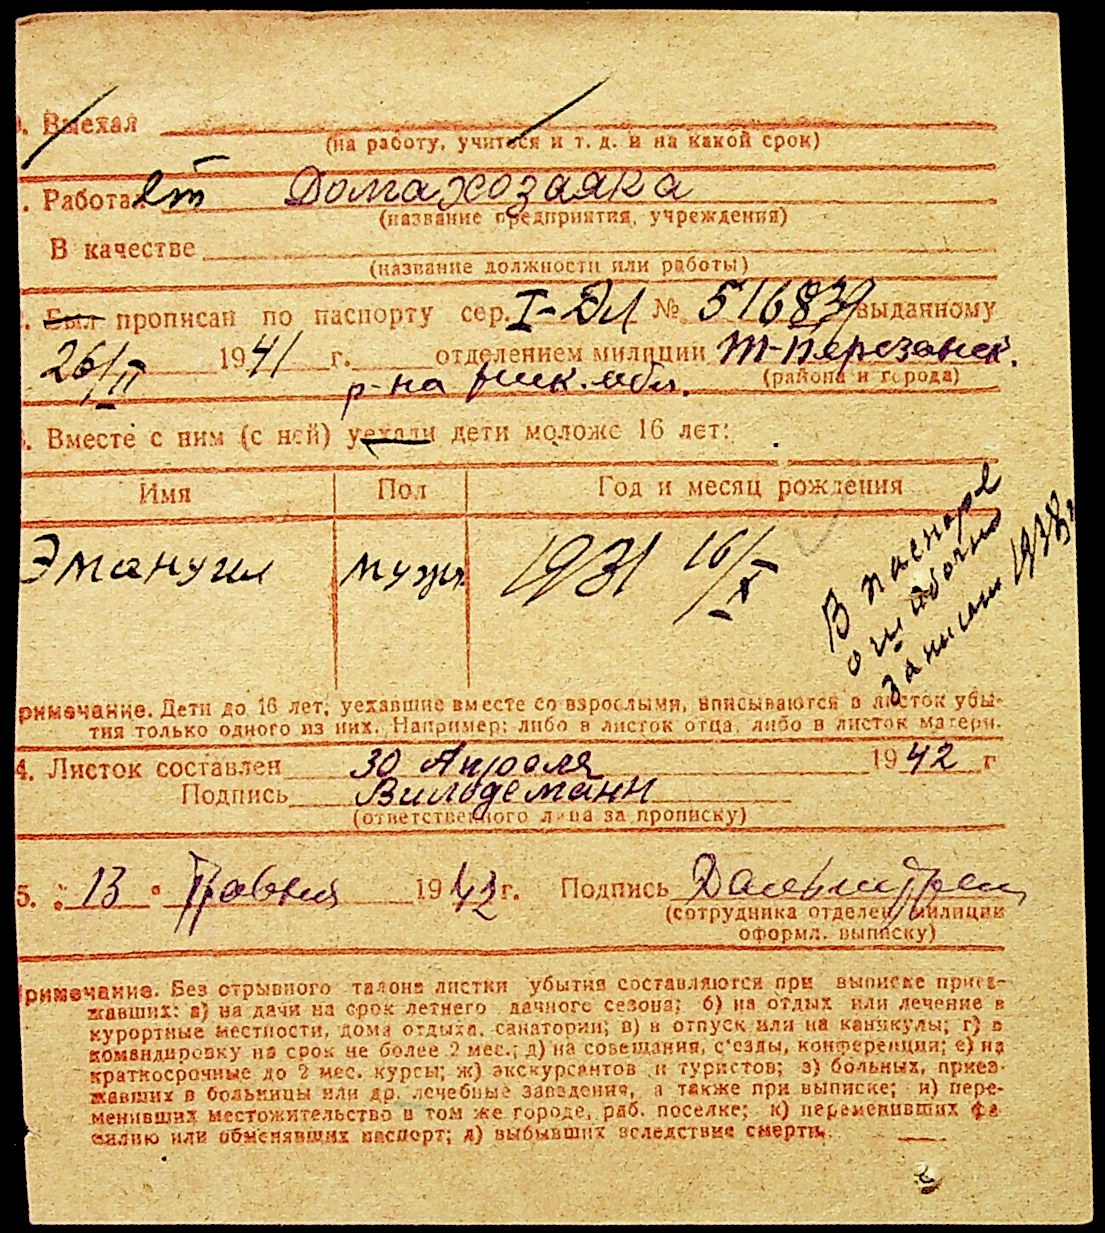 . Выехал
(на работу, учиться и т. д. и на какой срок)
. Работает Домахозаяка
(название предприятия, учреждения)
В качестве
(название должности или работы)
. Был прописан по паспорту сер. I-ДЛ № 516839 выданному
26/II 1941 г. отделением милиции
р-на обл. (района и города)
. Вместе с ним (с ней) уехали дети моложе 16 лет:
Имя Пол Год и месяц рождения
Эмануил мужп 1931 16/
В паспорте
ошибочно
записан 1938 г
римечание. Дети до 16 лет, уехавшие вместе со взрослыми, вписываются в листок убы-
тия только одного из них. Например: либо в листок отца, либо в листок матери.
4. Листок составлен 30 Апреля 1942 г
Подпись Вильдеманн
(ответственного лица за прописку)
5. " 13 " 1942 г. Подпись
(сотрудника отделен. милиции
оформл. выписку)
римечание. Без отрывного талона листки убытия составляются при выписке приез-
жавших: а) на дачи на срок летнего дачного сезона; б) на отдых или лечение в
курортные местности, дома отдыха, санатории; в) в отпуск или на каникулы; г) в
командировку на срок не более 2 мес.; д) на совещания, с'езды, конференции; е) на
краткосрочные до 2 мес. курсы; ж) экскурсантов и туристов; з) больных, приез-
жавших в больницы или др. лечебные заведения, а также при выписке; и) пере-
менивших местожительство в том же городе, раб. поселке; к) переменивших фа
милию или обменявших паспорт; л) выбывших вследствие смерти.